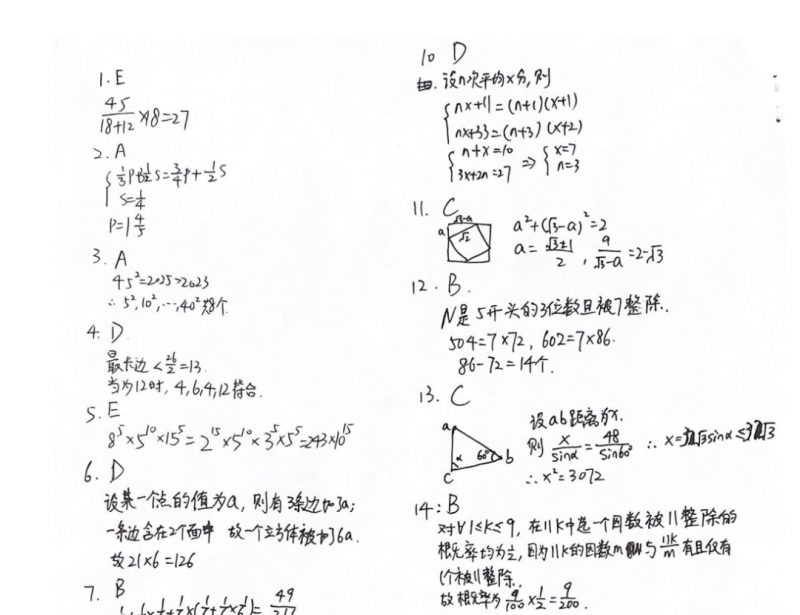 1. E
45/(18+12) ×18=27
2. A
S=1/4
3. A
45²=2025>2023
∴ 5²,10²,…,40²共8个.
4. D.
最长边<26/2=13.
当为12时, 4,6,4,12符合.
5. E
8⁵×5¹⁰×15⁵=2¹⁵×5¹⁰×3⁵×5⁵=243×10¹⁵
6. D
设某一个点的值为a, 则有3条边加了a;
一条边含在2个面中 故一个立方体被加了6a.
故21×6=126
7. B
10 D
设n次平均x分,则
nx+11=(n+1)(x+1)
nx+33=(n+3)(x+2)
{n+x=10
3x+2n=27 ⇒ {x=7
n=3
11. C
√3-a
a
√2
a²+(√3-a)²=2
a=(√3±1)/2, a/(√3-a)=2-√3
12. B.
N是5开头的3位数且被7整除.
504=7×72, 602=7×86.
86-72=14个.
13. C
设ab距离为x.
a
α
60°
b
c
则 x/sinα=48/sin60°
∴x²=3072
14: B
对∀1≤k≤9, 在11k中选一个因数被11整除的
概率均为½, 因为11k的因数m与11k/m有且仅有
1个被11整除.
故概率为9/100×1/2=9/200.